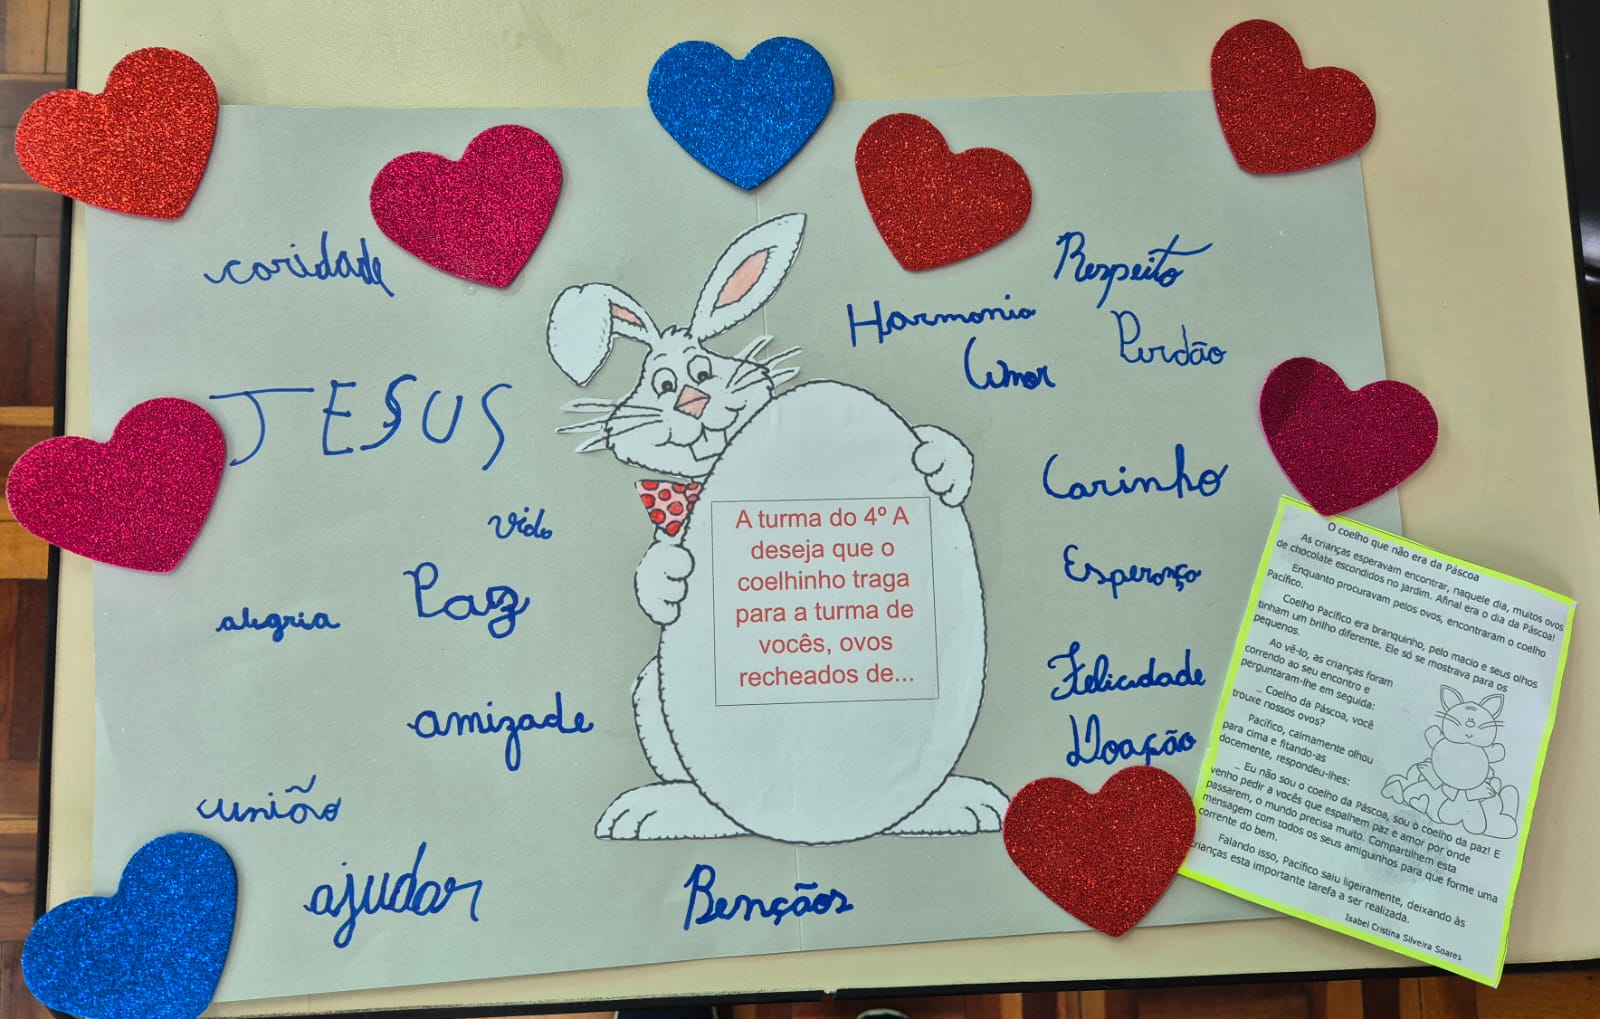 caridade
JESUS
vida
alegria
Paz
amizade
união
ajudar
A turma do 4º A
deseja que o
coelhinho traga
para a turma de
vocês, ovos
recheados de...
Bençãos
Respeito
Harmonia
Perdão
Amor
Carinho
Esperança
Felicidade
Doação
O coelho que não era da Páscoa
As crianças esperavam encontrar, naquele dia, muitos ovos
de chocolate escondidos no jardim. Afinal era o dia da Páscoa!
Enquanto procuravam pelos ovos, encontraram o coelho
Pacífico.
Coelho Pacífico era branquinho, pelo macio e seus olhos
tinham um brilho diferente. Ele só se mostrava para os
pequenos.
Ao vê-lo, as crianças foram
correndo ao seu encontro e
perguntaram-lhe em seguida:
_ Coelho da Páscoa, você
trouxe nossos ovos?
Pacífico, calmamente olhou
para cima e fitando-as
docemente, respondeu-lhes:
_ Eu não sou o coelho da Páscoa, sou o coelho da paz! E
venho pedir a vocês que espalhem paz e amor por onde
passarem, o mundo precisa muito. Compartilhem esta
mensagem com todos os seus amiguinhos para que forme uma
corrente do bem.
Falando isso, Pacífico saiu ligeiramente, deixando às
crianças esta importante tarefa a ser realizada.
Isabel Cristina Silveira Soares